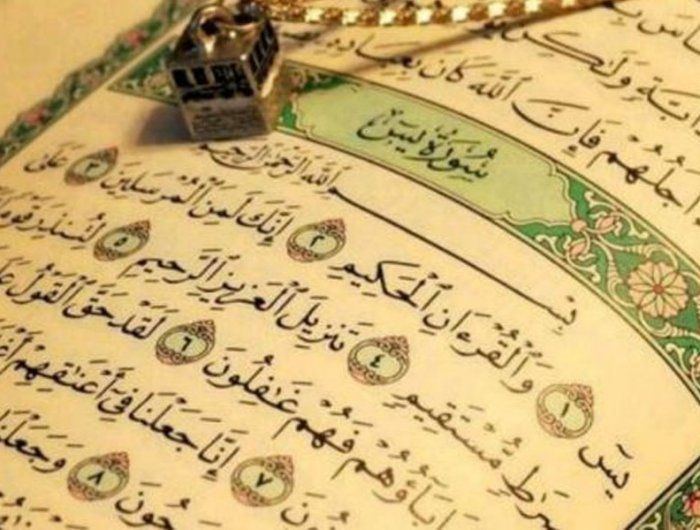 وَلَٰكِن
أَجَلُهُمْ فَإِنَّ ٱللَّهَ كَانَ
سُورَةُ يسٓ
بِسْمِ ٱللَّهِ ٱلرَّحْمَٰنِ ٱلرَّحِيمِ
يسٓ ١ وَٱلْقُرْءَانِ ٱلْحَكِيمِ ٢ إِنَّكَ لَمِنَ ٱلْمُرْسَلِينَ ٣ عَلَىٰ
صِرَٰطٍ مُّسْتَقِيمٍ ٤ تَنزِيلَ ٱلْعَزِيزِ ٱلرَّحِيمِ ٥ لِتُنذِرَ
ءَابَآؤُهُمْ فَهُمْ غَٰفِلُونَ ٦ لَقَدْ حَقَّ ٱلْقَوْلُ
٧ إِنَّا جَعَلْنَا فِىٓ أَعْنَٰقِهِمْ
٨ وَجَعَلْنَا